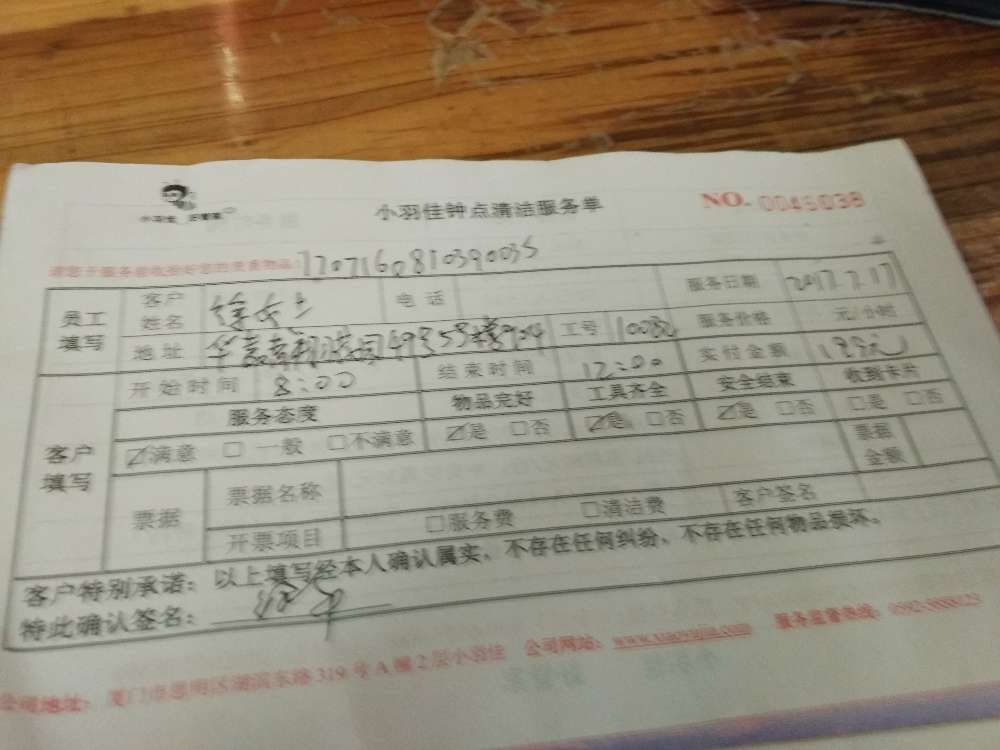 小羽佳 好管家
小羽佳钟点清洁服务单
NO. 0046038
请您于服务前收捡好您的贵重物品: 170716081039003S
员工填写 客户姓名 徐女士 电话 服务日期 2017.7.17
地址 工号 服务价格 元/小时
客户填写 开始时间 8:00 结束时间 12:00 实付金额
服务态度 物品完好 工具齐全 安全结束 收到卡片
☑满意 □一般 □不满意 ☑是 □否 ☑是 □否 ☑是 □否 □是 □否
票据 票据名称 票据金额
开票项目 □服务费 □清洁费 客户签名
客户特别承诺: 以上填写经本人确认属实，不存在任何纠纷，不存在任何物品损坏。
特此确认签名:
公司地址: 厦门市思明区湖滨东路319号A幢2层小羽佳 公司网站: www.xiaoyujia.com 服务监督热线: